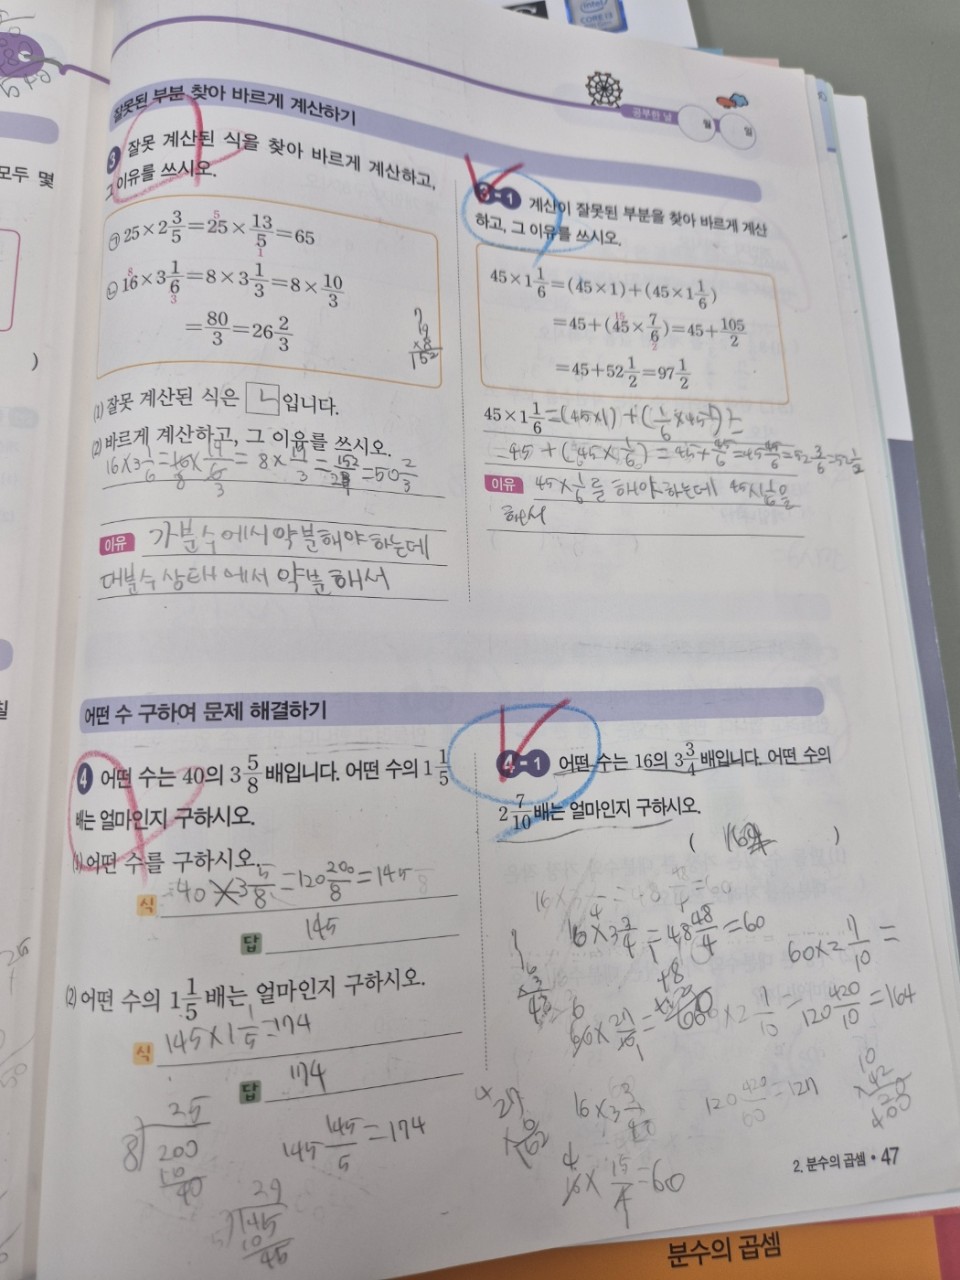 intel
CORE i5
공부한 날
월
일
모두 몇
)
칠
잘못된 부분 찾아 바르게 계산하기
3 잘못 계산된 식을 찾아 바르게 계산하고,
그 이유를 쓰시오.
㉠ 25×2 3/5=25×13/5=65
5
1
㉡ 16×3 1/6=8×3 1/3=8×10/3
8
3
=80/3=26 2/3
×8
152
(1) 잘못 계산된 식은 ㄴ입니다.
(2) 바르게 계산하고, 그 이유를 쓰시오.
16×3 1/6=16×19/6=8×19/3=152/3=50 2/3
이유 가분수에서 약분해야 하는데
대분수 상태에서 약분해서
3-1 계산이 잘못된 부분을 찾아 바르게 계산
하고, 그 이유를 쓰시오.
45×1 1/6=(45×1)+(45×1 1/6)
=45+(45×7/6)=45+105/2
15
2
=45+52 1/2=97 1/2
45×1 1/6=(45×1)+(1/6×45)=
=45+(45×1/6)=45+45/6=45 45/6=52 3/6=52 1/2
이유 45×1/6를 해야하는데 45×1 1/6을
해서
어떤 수 구하여 문제 해결하기
4 어떤 수는 40의 3 5/8배입니다. 어떤 수의 1 1/5
배는 얼마인지 구하시오.
(1) 어떤 수를 구하시오.
식 40×3 5/8=120 200/8=145
답 145
(2) 어떤 수의 1 1/5배는 얼마인지 구하시오.
식 145×1 1/5=174
답 174
25
8 200
40
145 145/5=174
29
5 145
10
45
4-1 어떤 수는 16의 3 3/4배입니다. 어떤 수의
2 7/10배는 얼마인지 구하시오.
( 162 )
16×3 3/4=48 48/4=60
60×2 7/10=
60×27/10=
120 420/10=164
16×3 3/4
120 420/60=127
16×15/4=60
27
162
2. 분수의 곱셈 • 47
분수의 곱셈